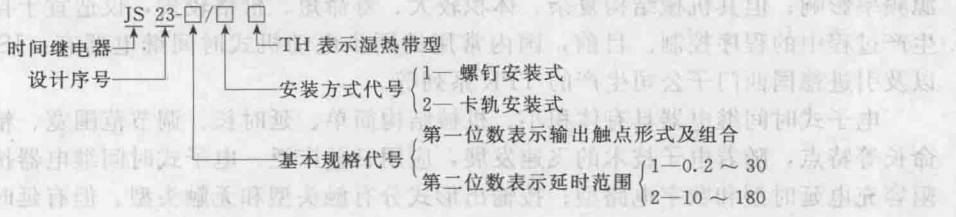 JS 23-□/□ □
时间继电器
设计序号
TH 表示湿热带型
安装方式代号
1— 螺钉安装式
2— 卡轨安装式
基本规格代号
第一位数表示输出触点形式及组合
第二位数表示延时范围
1—0.2 ～ 30
2—10 ～ 180